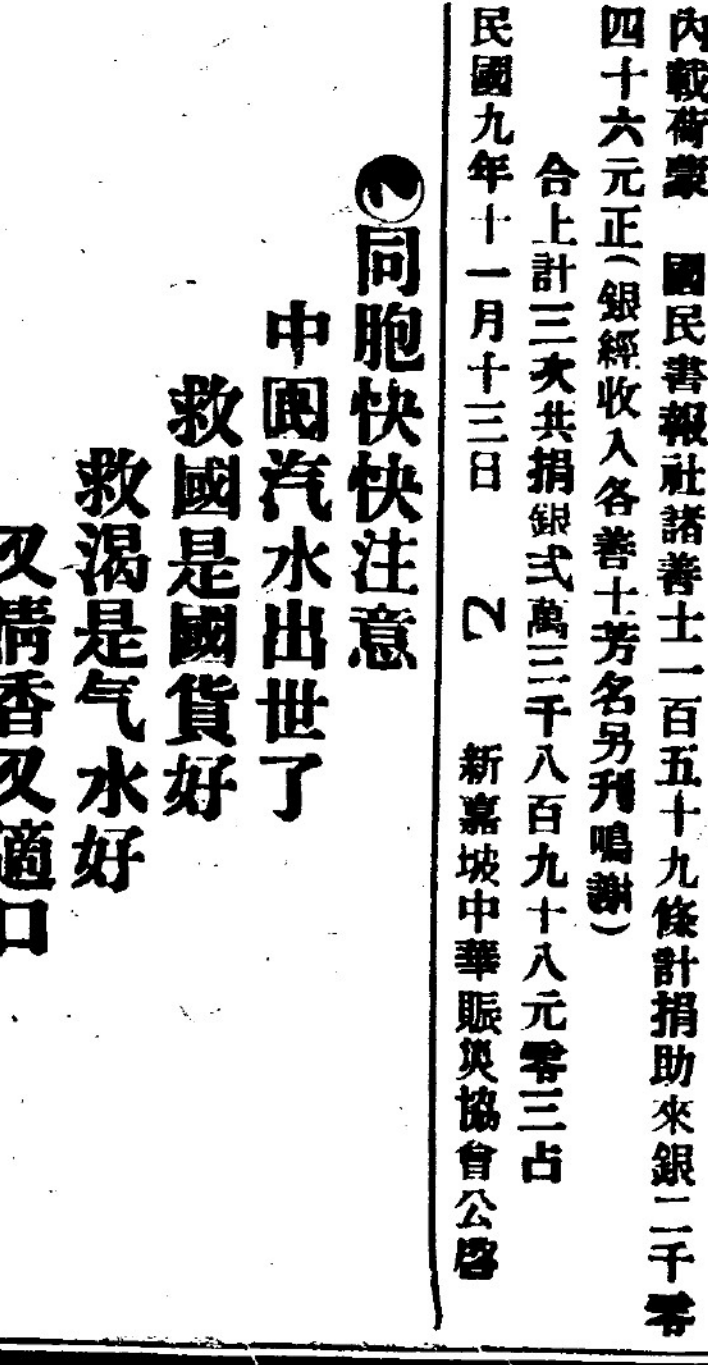 內載荷蒙　國民書報社諸善士一百五十九條計捐助來銀二千零
四十六元正（銀經收入各善士芳名另刊鳴謝）
合上計三次共捐銀弍萬三千八百九十八元零三占
民國九年十一月十三日　2　新嘉坡中華賑災協會公啓
同胞快快注意
中國汽水出世了
救國是國貨好
救渴是气水好
又清香又適口